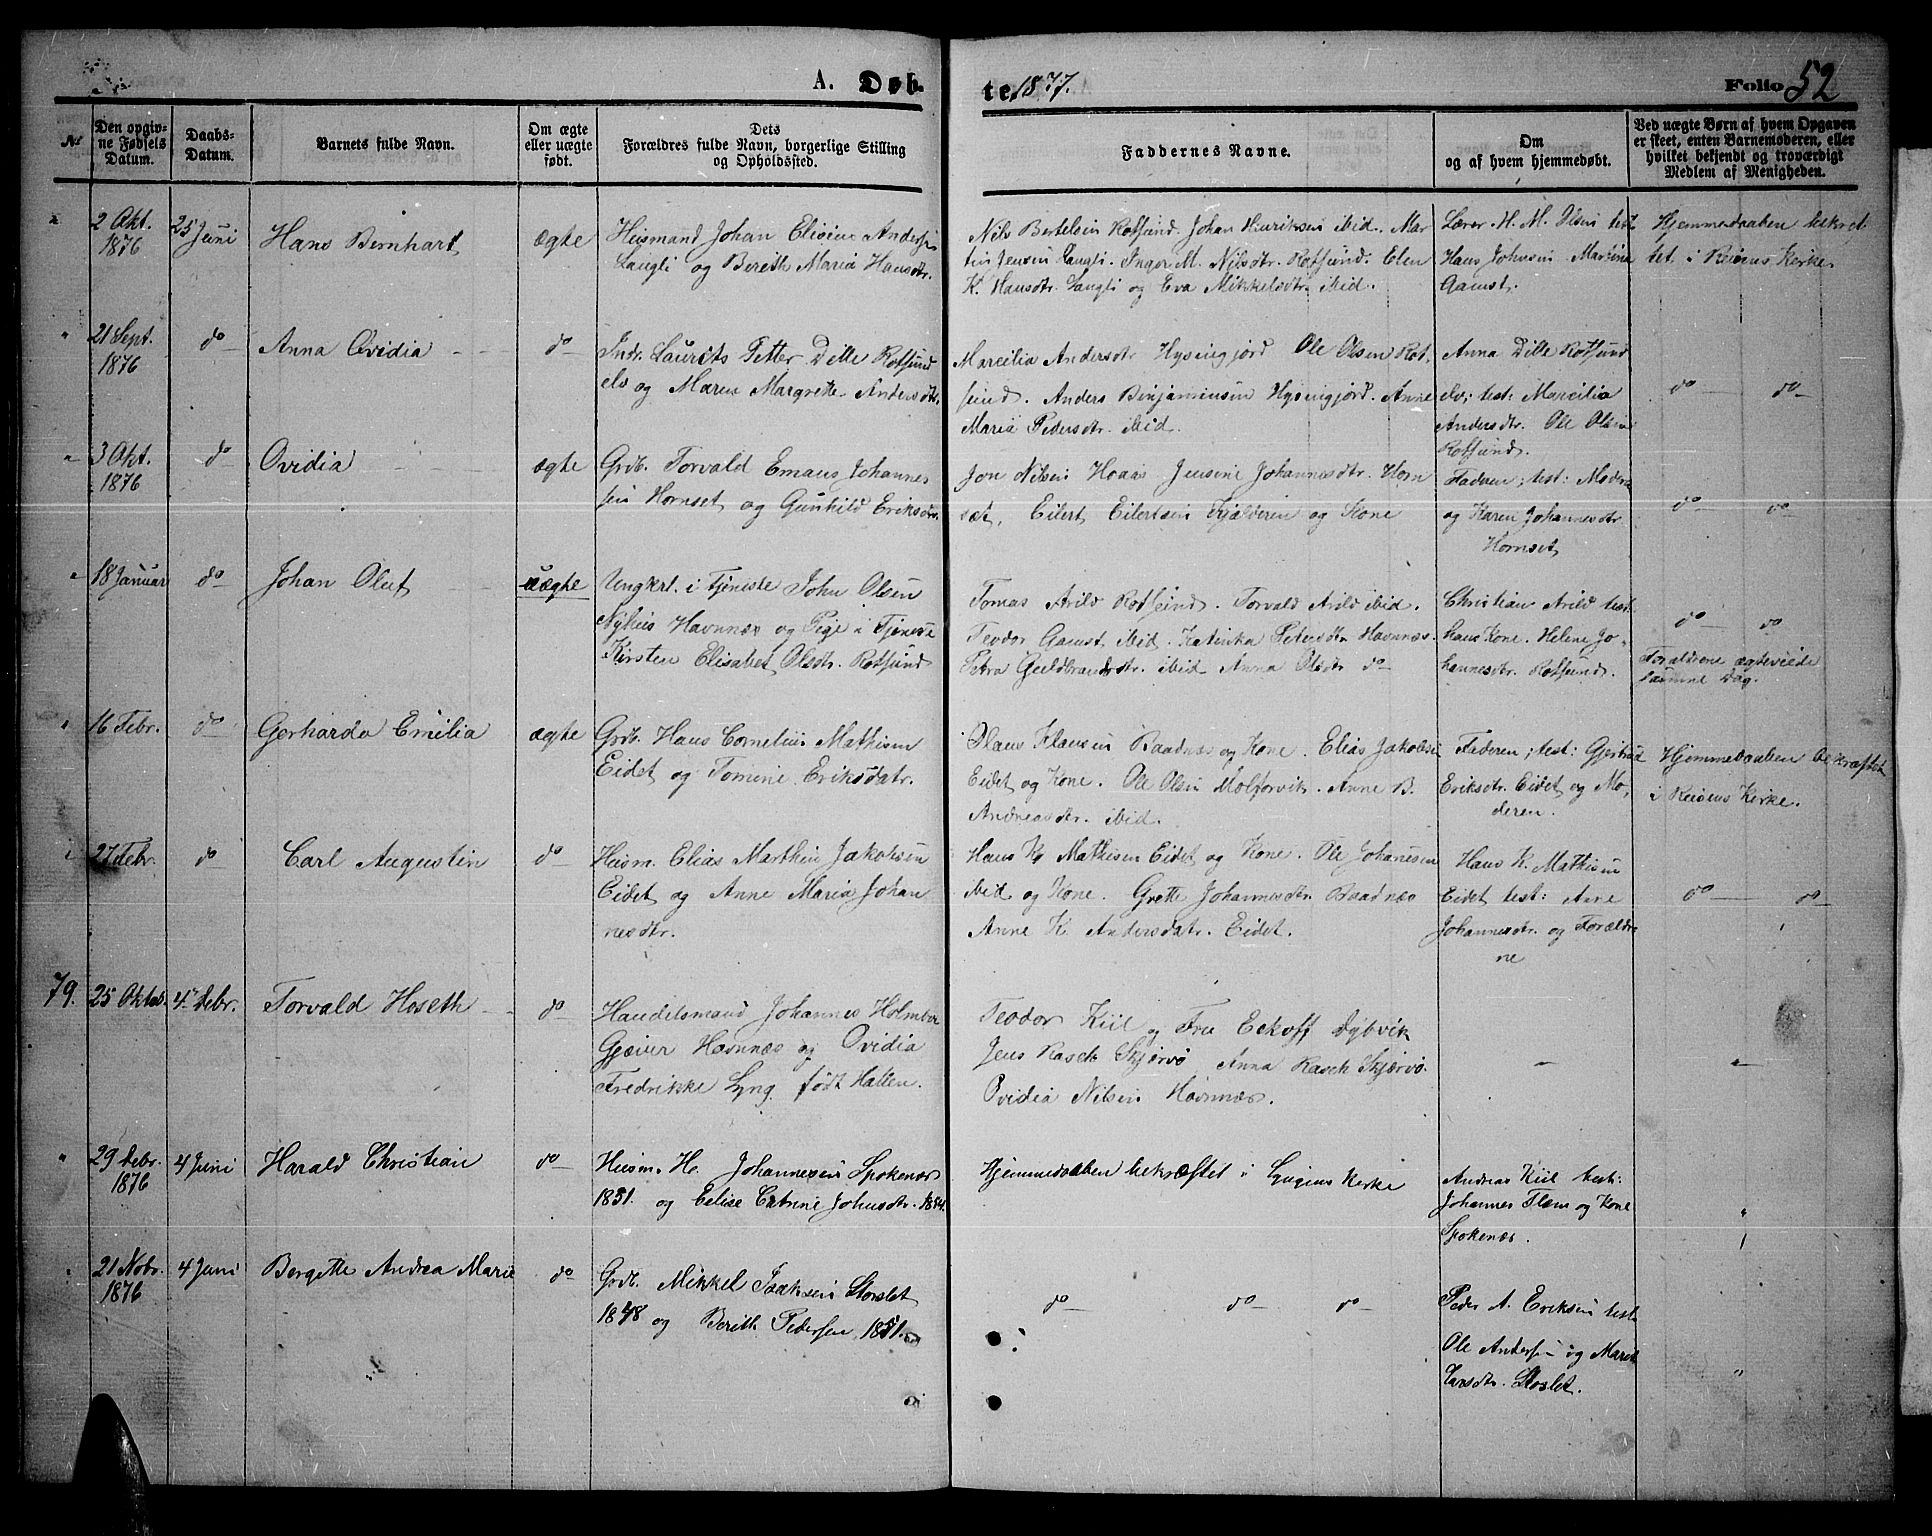 A. Døb-
te 1877.
Folio 52
No
Den opgiv-
ne Fødsels
Datum.
Daabs-
Datum.
Barnets fulde Navn.
Om ægte
eller uægte
født.
Dets
Forældres fulde Navn, borgerlige Stilling
og Opholdssted.
Faddernes Navne.
Om
og af hvem hjemmedøbt.
Ved uægte Børn af hvem Opgaven
er skeet, enten Barnemoderen, eller
hvilket bekjendt og troværdigt
Medlem af Menigheden.
2 Okt.
1876
25 Juni
Hans Bernhart
ægte
Husmand Johan Elisius Andersen
Langli og Bereth Maria Hansdtr.
Nils Bertelsen Rotsund. Johan Henriksen ibid. Mar
tin Jensen Langli. Inger M. Nilsdtr. Rotsund. Elen
K. Hansdtr. Langli og Eva Mikkelsdtr. ibid.
Lærer H. M. Olsen test
Hans Johnsen Martina
Gamst.
Hjemmedaaben bekræf
tet i Reisens Kirke
21 Sept.
1876
do
Anna Ovidia
do
Indr. Laurits Petter Dille Rotsund
elv og Maren Margrethe Andersdtr.
Marcilia Andersdtr Hysingjord Ole Olsen Rot,
sund. Anders Binjaminsen Hysingjord. Anne
Maria Pedersdtr. ibid.
Anna Dille Rotsund
elv; test: Marcilia
Andersdtr. Ole Olsen
Rotsund.
do do
3 Okt.
1876
do
Ovidia
ægte
Grdb. Torvald Emaus Johannes
sen Hornset og Gunhild Eriksdtr.
Jon Nilsen Hoaas Jensine Johannesdtr. Horn
sæt, Eilert Eilertsen Kjælderen og Kone
Faderen; test: Moderen
og Karen Johannesdtr
Hornset
do do
18 Januar
do
Johan Oluf
uægte
Ungkrl. i Tjeneste John Olsen
Nyhus Havnnæs og Pige i Tjeneste
Kirsten Elisabet Olsdtr. Rotsund
Tomas Arild Rotsund. Torvald Arild ibid.
Teodor Gamst ibid. Katinka Petersdtr Havnnæs.
Petra Guldbrandsdtr. ibid Anna Olsdtr do
Christian Arild test:
hans Kone. Helene Jo-
hannesdtr. Rotsund.
do do
Forældrene ægteviede
samme Dag.
16 Febr.
do
Gerharda Emilia
ægte
Grdb. Hans Cornelius Mathisen
Eidet og Tomine Eriksdatr.
Olaus Klausen Baadnæs og Kone. Elias Jakobsen
Eidet og Kone. Ole Olsen Molforvik. Anne B.
Andreasdtr. ibid.
Faderen; test: Gjertrud
Eriksdtr. Eidet og Mo,
deren.
Hjemmedaaben bekræftet
i Reisens Kirke.
27 Febr.
do
Carl Augustin
do
Husm. Elias Marthin Jakobsen
Eidet og Anne Maria Johan
nesdtr.
Hans K. Mathisen Eidet og Kone. Ole Johanesen
ibid og Kone. Grette Johannesdtr. Baadnæs
Anne K. Andersdatr. Eidet.
Hans K. Mathisen
Eidet test: Anne
Johannesdtr. og Foræld
ne
do do
79.
25 Oktob.
4 Debr.
Torvald Hoseth
do
Handelsmand Johannes Holmboe
Gjæver Havnnæs og Ovidia
Fredrikke Lyng født Hatten.
Teodor Kiil og Fru Eckoff Dybvik
Jens Rasch Skjærvø Anna Rasch Skjærvø.
Ovidia Nilsen Havnnæs.
29 Debr.
1876
4 Juni
Harald Christian
do
Husm. H. Johannesen Spokenæs
1851. og Eelise Catrine Johnsdtr. 1844.
Hjemmedaaben bekræftet i Lyngens Kirke
Andreas Kiil test:
Johannes Flæm og Kone
Spokenæs.
21 Nobr.
1876
4 Juni
Bergette Andrea Marie
do
Grdb. Mikkel Isaksen Storslet
1848 og Berith Pedersen 1851.
do do do
Peder A. Eriksen test:
Ole Andersen og Marit
Larsdtr. Storslet.